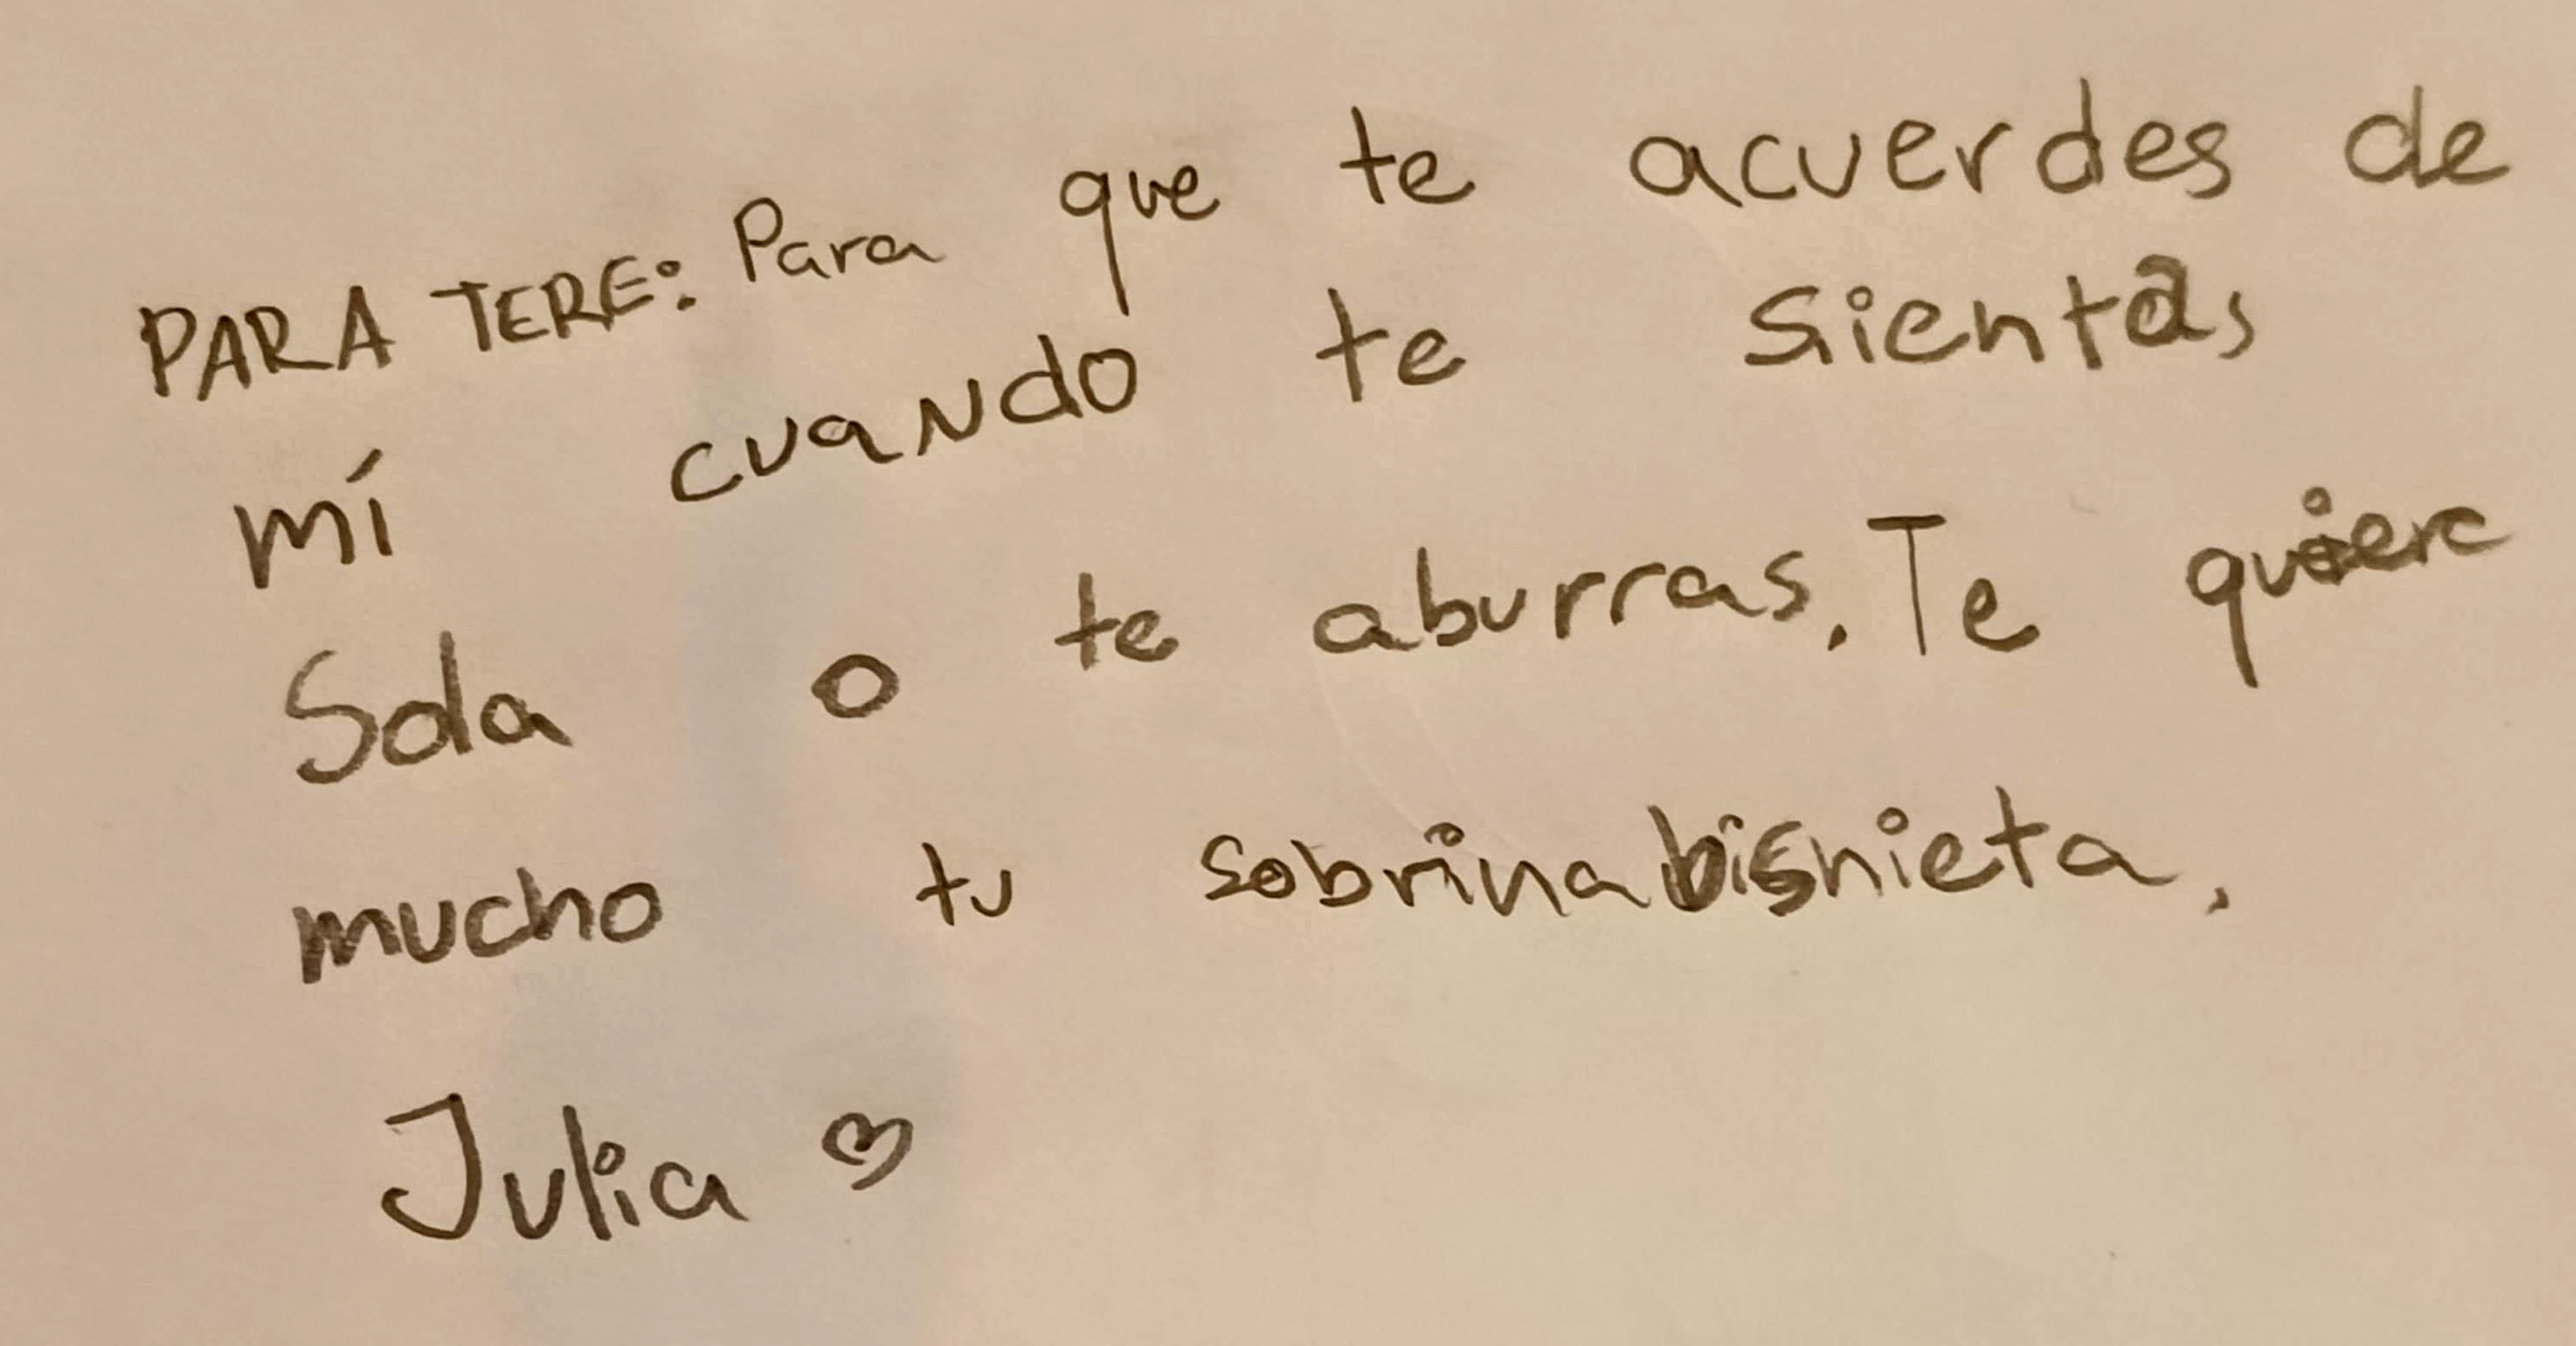 PARA TERE: Para que te acuerdes de
mí cuando te sientas
Sola o te aburras. Te quiere
mucho tu sobrina bisnieta,
Julia ♡